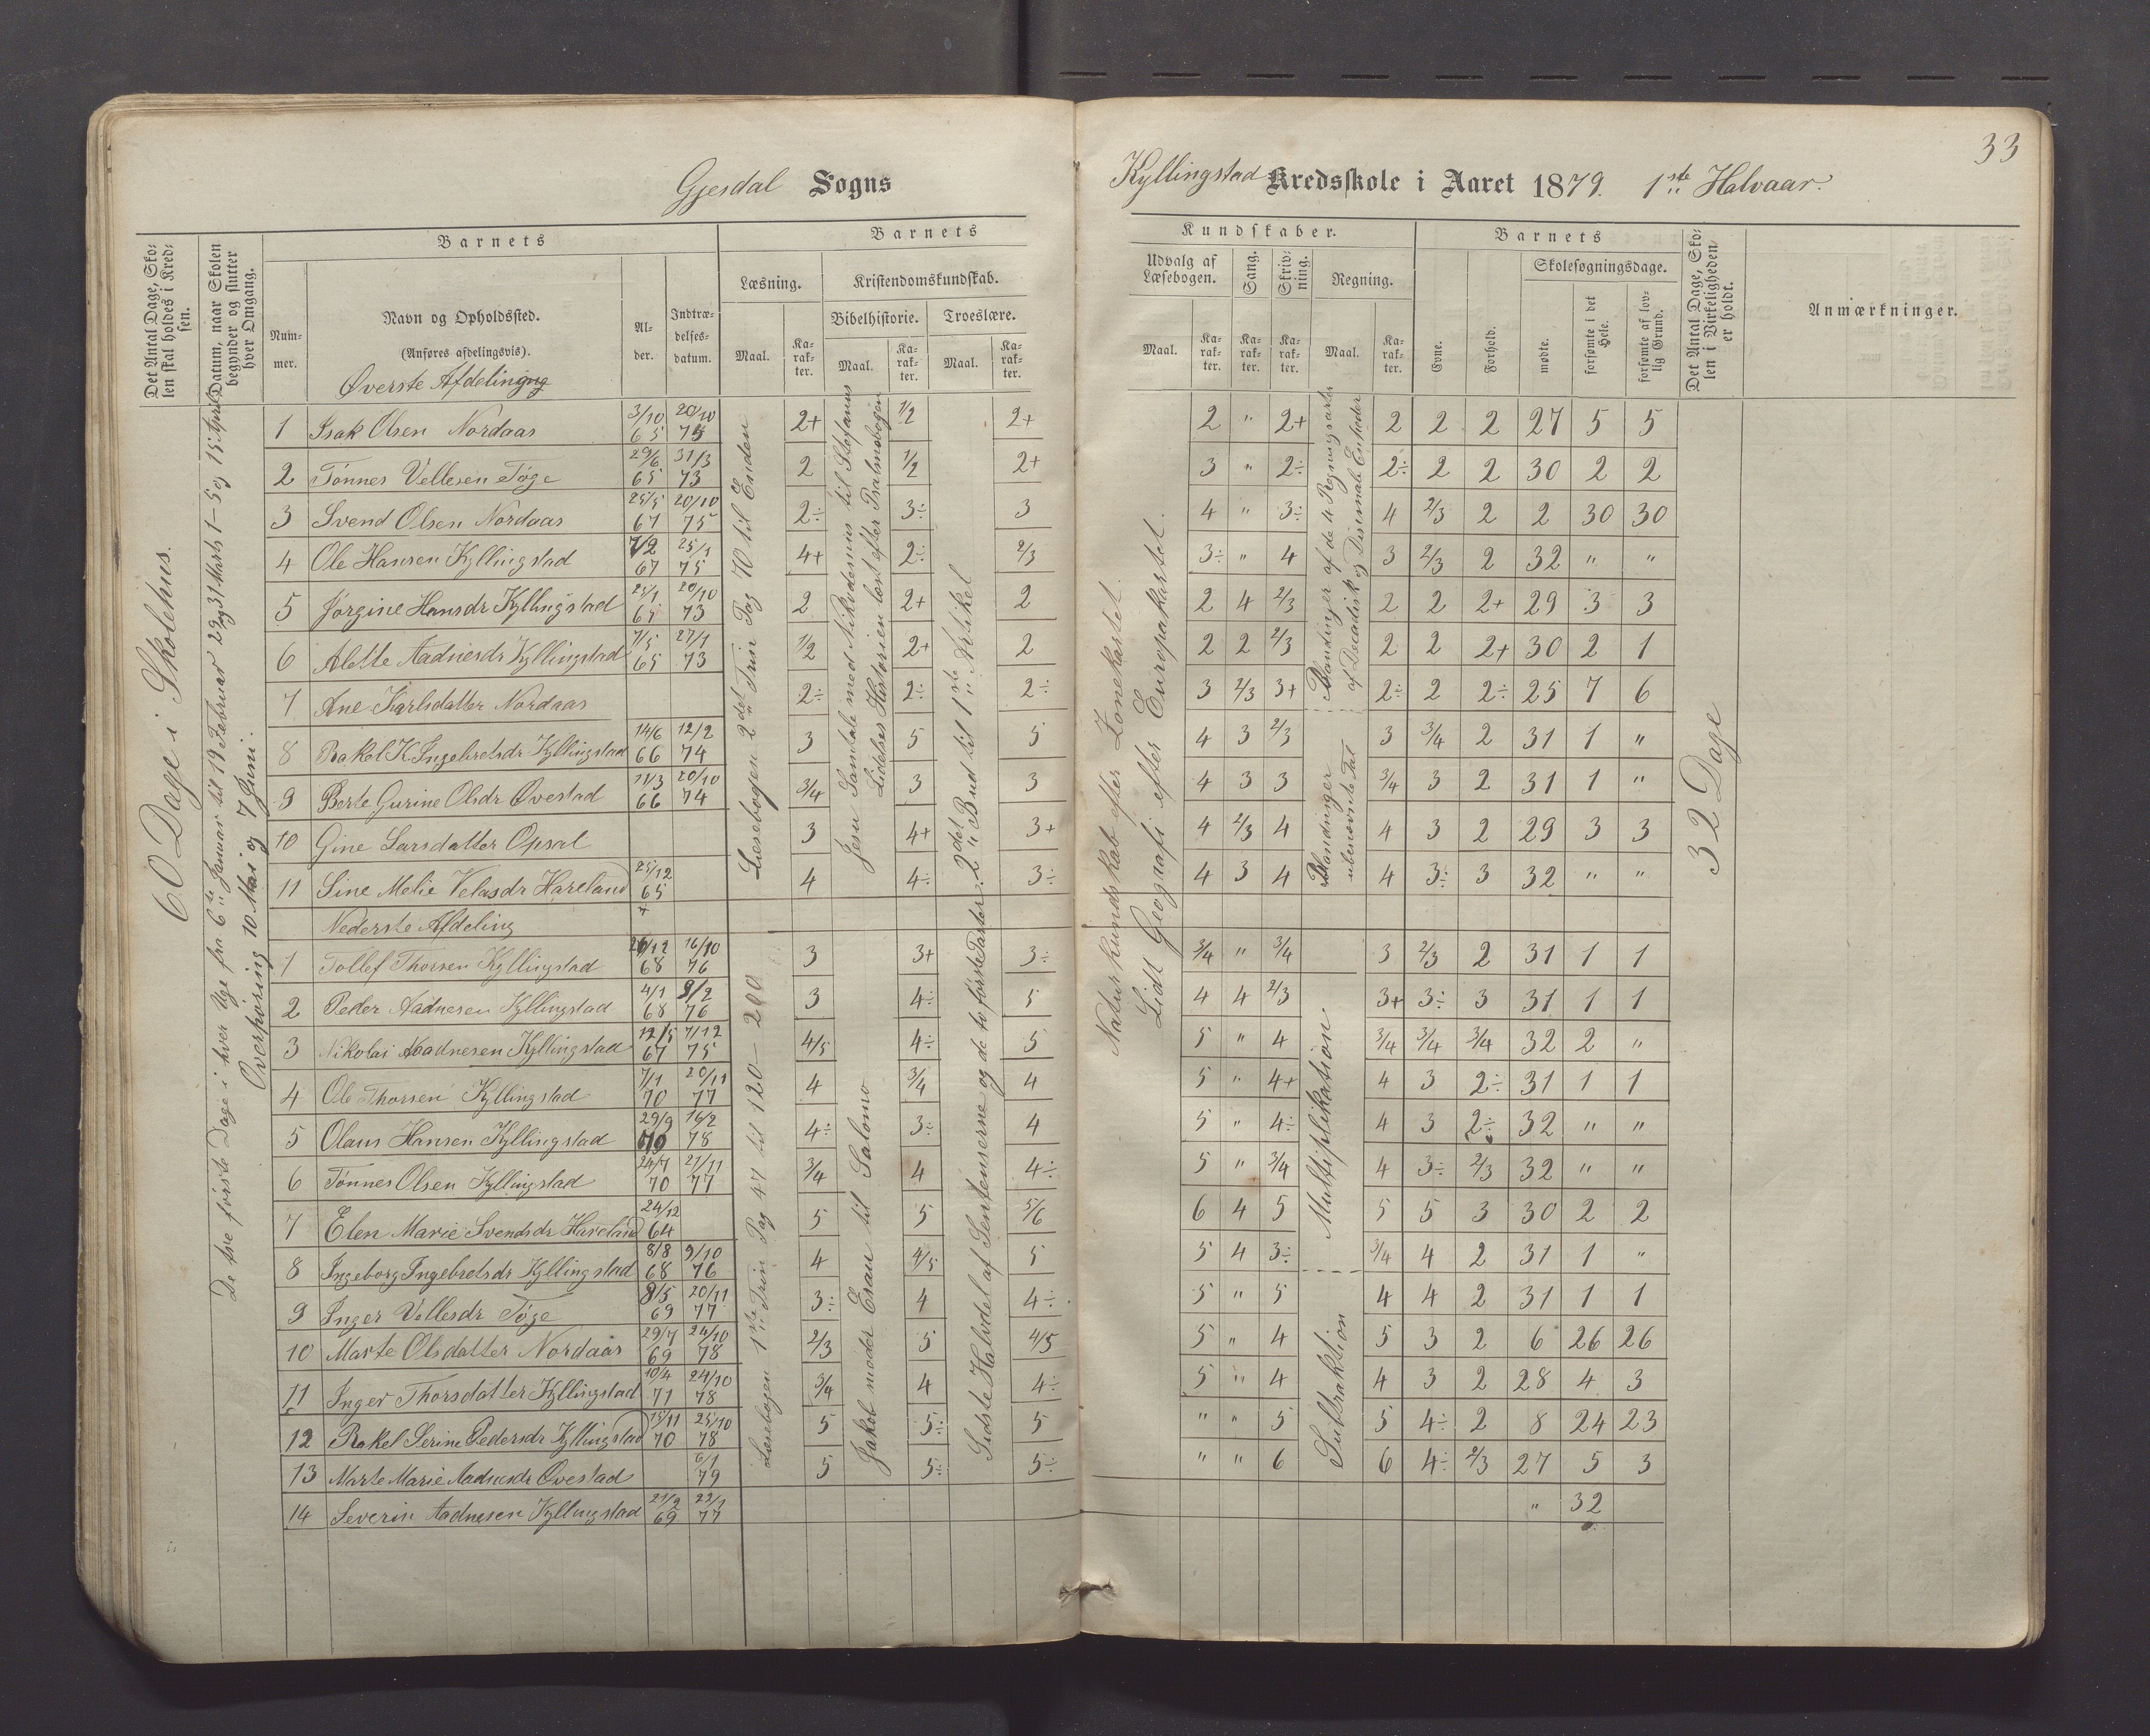 33
Gjesdal Sogns
Kyllingstad Kredsskole i Aaret 1879. 1ste Halvaar.
Det Antal Dage, Skolen skal holdes i Kredsen.
Datum, naar Skolen begynder og slutter hver Omgang.
Barnets
Nummer.
Navn og Opholdssted.
(Anføres afdelingsvis).
Alder.
Indtrædelsesdatum.
Barnets
Læsning.
Maal.
Karakter.
Kristendomskundskab.
Bibelhistorie.
Maal.
Karakter.
Troeslære.
Maal.
Karakter.
Kundskaber.
Udvalg af Læsebogen.
Maal.
Karakter.
Sang.
Karakter.
Skrivning.
Karakter.
Regning.
Maal.
Karakter.
Barnets
Evne.
Forhold.
Skolesøgningsdage.
mødte.
forsømte i det Hele.
forsømte af lovlig Grund.
Det Antal Dage, Skolen i Virkeligheden er holdt.
Anmærkninger.
60 Dage i Skolehus.
De tre første Dage i hver Uge fra 6te Januar til 19 Februar 29 og 31 Marts 1-5 og 15 April
Overhøring 10 Mai og 7 Juni.
Læsebogen 2det Trin Pag 70 til Enden
Jesu Samtale med Nikodemus til Stefanus
Lidelses Historien læst efter Psalmebogen
2det Bud til 1ste Artikel
Naturkundskab efter Zonekartet
Lidt Geografi efter Europakartet.
Blandinger af de 4 Regningsarter
af Decadisk og Desimale Enheder
Blandinger
ubenævnte Tal
32 Dage
Øverste Afdeling
1 Isak Olsen Nordaas 3/10 65 20/10 75 2+ 1/2 2+ 2 " 2+ 2 2 2 27 5 5
2 Tønnes Vellesen Tøge 29/6 65 31/3 73 2 1/2 2+ 3 " 2÷ 2÷ 2 2 30 2 2
3 Svend Olsen Nordaas 25/5 67 20/10 75 2÷ 3÷ 3 4 " 3÷ 4 2/3 2 2 30 30
4 Ole Hansen Kyllingstad 7/2 67 25/1 75 4+ 2÷ 2/3 3÷ " 4 3 2/3 2 32 " "
5 Jørgine Hansdr Kyllingstad 25/1 65 20/10 73 2 2+ 2 2 4 2/3 2 2 2+ 29 3 3
6 Alette Aadnesdr Kyllingstad 7/5 65 27/1 73 1/2 2+ 2 2 2 2/3 2 2 2+ 30 2 1
7 Ane Karlsdatter Nordaas 2÷ 2÷ 2÷ 3 2/3 3+ 2÷ 2 2÷ 25 7 6
8 Rakel K. Ingebretsdr Kyllingstad 14/6 66 12/2 74 3 5 5 4 3 2/3 3 3/4 2 31 1 "
9 Berte Gurine Olsdr Øvestad 11/3 66 20/10 74 3/4 3 3 4 3 3 3/4 3 2 31 1 "
10 Gine Larsdatter Opsal 3 4+ 3+ 4 2/3 4 4 3 2 29 3 3
11 Sine Melie Velasdr Hareland 25/12 65 4 4÷ 3÷ 4 3 4 4 3÷ 3 32 " "
Nederste Afdeling
Læsebogen 1ste Trin Pag 47 til 120-200
Jakob møder Esau til Salomo
Sidste Halvdel af Sentenserne og de to første Parter.
Multiplikation
Subtraktion
1 Tollef Thorsen Kyllingstad 26/12 68 16/10 76 3 3+ 3÷ 3/4 " 3/4 3 2/3 2 31 1 1
2 Peder Aadnesen Kyllingstad 4/1 68 9/2 76 3 4÷ 5 4 4 2/3 3+ 3÷ 3 31 1 1
3 Nikolai Aadnesen Kyllingstad 12/5 67 7/12 75 4/5 4÷ 5 5 " 4 3/4 3/4 3/4 32 2 "
4 Ole Thorsen Kyllingstad 7/1 70 20/11 77 4 3/4 4 5 " 4+ 4 3 2÷ 31 1 1
5 Olaus Hansen Kyllingstad 29/9 70 16/2 78 4÷ 3÷ 4 5 " 4÷ 4 3 2÷ 32 " "
6 Tønnes Olsen Kyllingstad 24/7 70 21/11 77 3/4 4 4÷ 5 " 3/4 4 3÷ 2/3 32 " "
7 Elen Marie Svendsdr Hareland 24/12 64 5 5 5/6 6 4 5 5 5 3 30 2 2
8 Ingeborg Ingebretsdr Kyllingstad 8/8 68 9/10 76 4 4/5 5 5 4 3÷ 3/4 4 2 31 1 "
9 Inger Vellesdr Tøge 8/5 69 20/11 77 3÷ 4 4÷ 5 " 5 4 4 2 31 1 1
10 Marte Olsdatter Nordaas 29/7 69 24/10 78 2/3 5 4/5 5 " 4 5 3 2 6 26 26
11 Inger Thorsdatter Kyllingstad 10/4 71 24/10 78 3/4 4 4÷ 5 " 4 4 3 2 28 4 3
12 Rakel Serine Pedersdr Kyllingstad 15/11 70 25/10 78 5 5÷ 5 " " 5 5 4÷ 2 8 24 23
13 Marte Marie Aadnesdr Øvestad 6/1 79 5 5÷ 5÷ " " 6 6 4÷ 2/3 27 5 3
14 Severin Aadnesen Kyllingstad 21/2 69 22/1 77 " 32